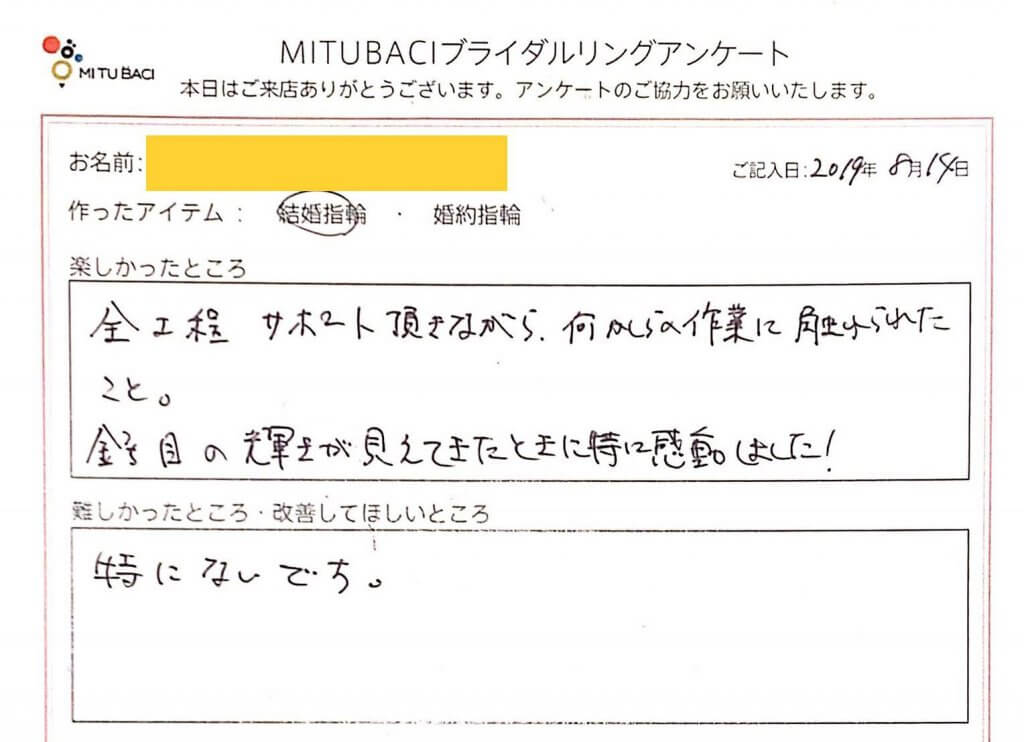 MITUBACI
MITUBACIブライダルリングアンケート
本日はご来店ありがとうございます。アンケートのご協力をお願いいたします。
お名前:
ご記入日:2019年 8月14日
作ったアイテム : 結婚指輪 ・ 婚約指輪
楽しかったところ
全工程 サポート頂きながら、何かしらの作業に触れられた
こと。
鎚目の輝きが見えてきたときに特に感動しました!
難しかったところ・改善してほしいところ
特にないです。